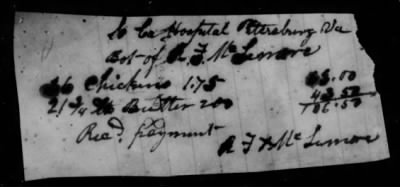 So Ca Hospital Petersburg Va
Bot of A. F. McLimore
36 Chickens 1.75 63.00
21 3/4 lb Butter 2 00 43.50
106.50
Recd. payment
A F McLimore